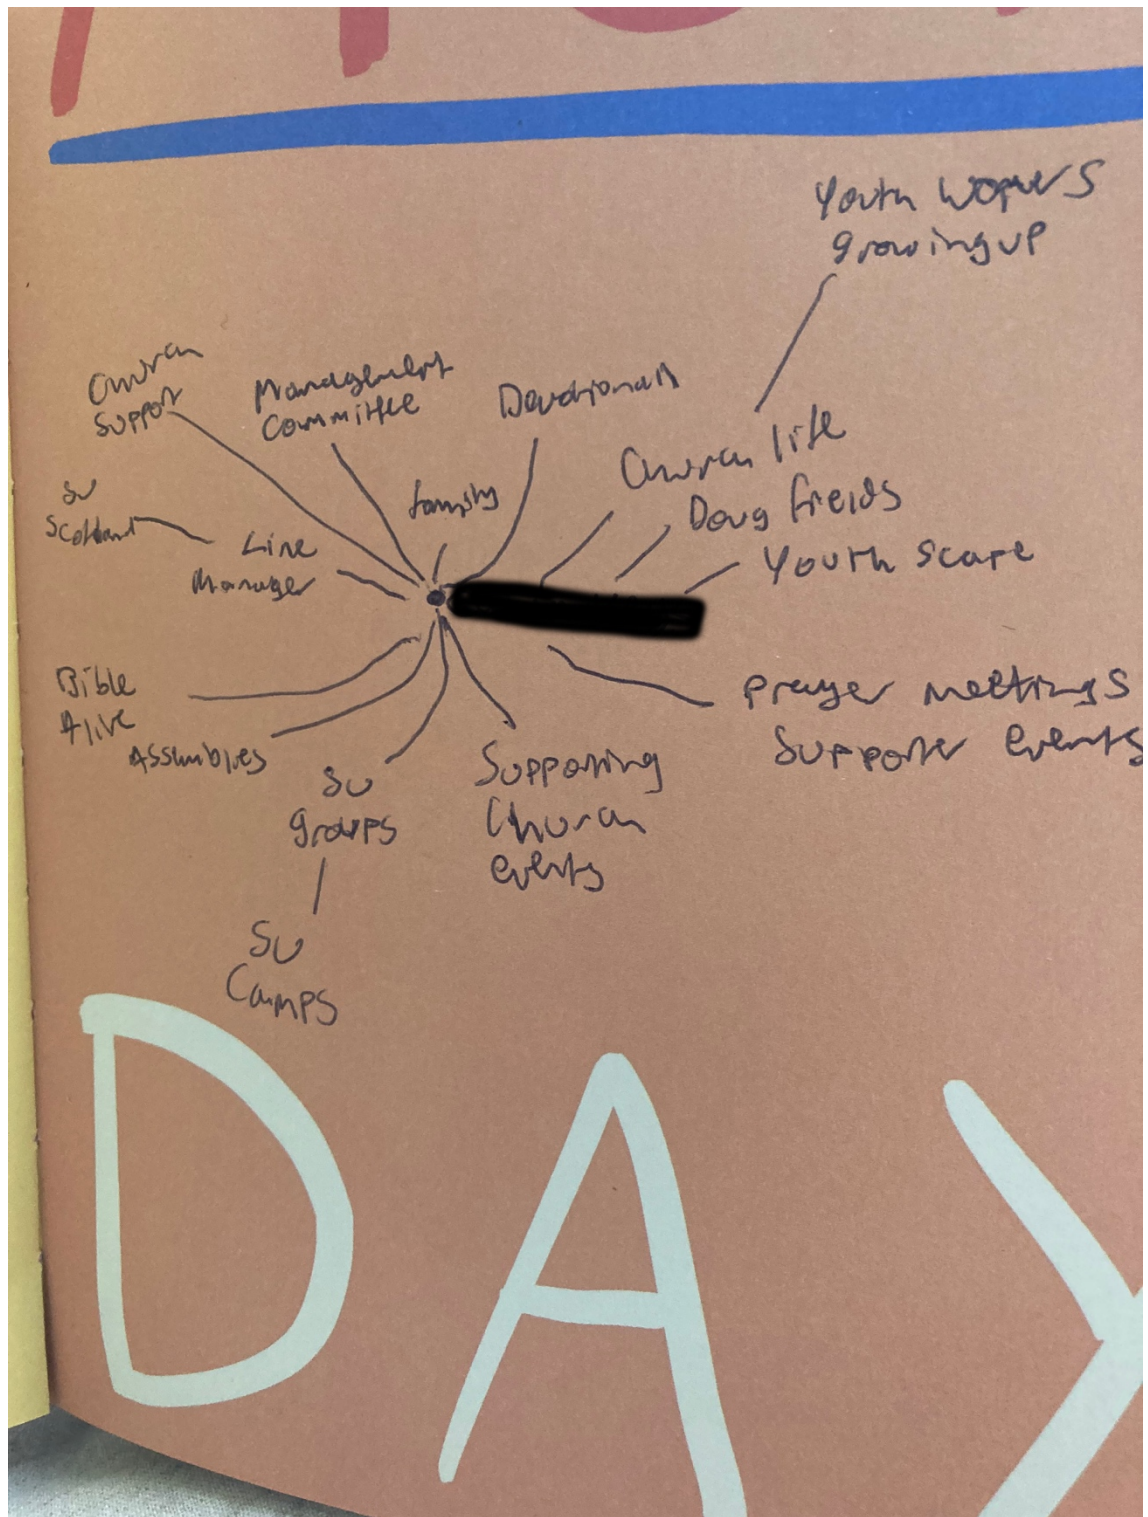 Youth workers
growing up
Church
Support
Management
Committee
Devotionals
family
Church life
Doug Fields
Youth Scape
SU
Scotland
Line
Manager
Bible
Alive
Assemblies
SU
groups
SU
Camps
Supporting
Church
events
prayer meetings
Supporter events
DAY